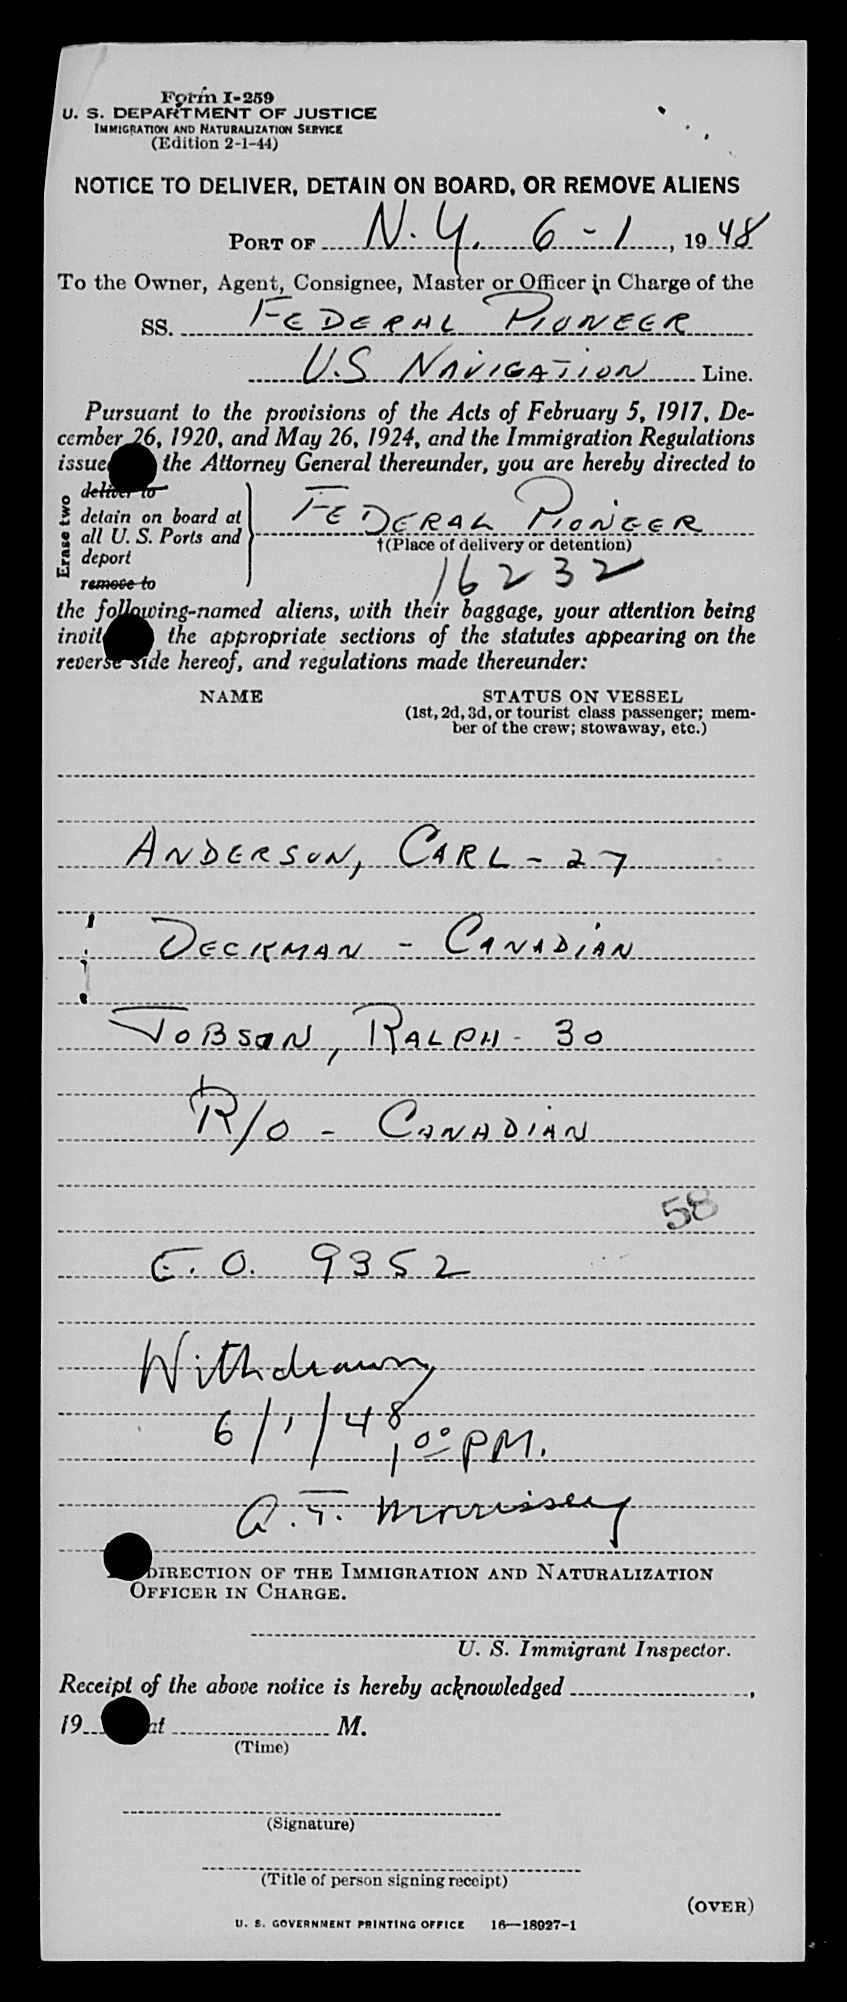 Form I-259
U. S. DEPARTMENT OF JUSTICE
IMMIGRATION AND NATURALIZATION SERVICE
(Edition 2-1-44)
NOTICE TO DELIVER, DETAIN ON BOARD, OR REMOVE ALIENS
PORT OF N.Y. 6-1, 1948
To the Owner, Agent, Consignee, Master or Officer in Charge of the
SS. FEDERAL PIONEER
U.S NAVIGATION Line.
Pursuant to the provisions of the Acts of February 5, 1917, De-
cember 26, 1920, and May 26, 1924, and the Immigration Regulations
issue the Attorney General thereunder, you are hereby directed to
Erase two
deliver to
detain on board at
all U. S. Ports and
deport
remove to
FEDERAL PIONEER
†(Place of delivery or detention)
16232
the following-named aliens, with their baggage, your attention being
invit the appropriate sections of the statutes appearing on the
reverse side hereof, and regulations made thereunder:
NAME STATUS ON VESSEL
(1st, 2d, 3d, or tourist class passenger; mem-
ber of the crew; stowaway, etc.)
ANDERSON, CARL - 27
DECKMAN - CANADIAN
JOBSON, RALPH - 30
R/O - CANADIAN
58
E.O. 9352
Withdrawn
6/1/48
1 00 PM.
A.T. Morrissey
DIRECTION OF THE IMMIGRATION AND NATURALIZATION
OFFICER IN CHARGE.
U. S. Immigrant Inspector.
Receipt of the above notice is hereby acknowledged ,
19 at M.
(Time)
(Signature)
(Title of person signing receipt)
(OVER)
U. S. GOVERNMENT PRINTING OFFICE 16—18927-1